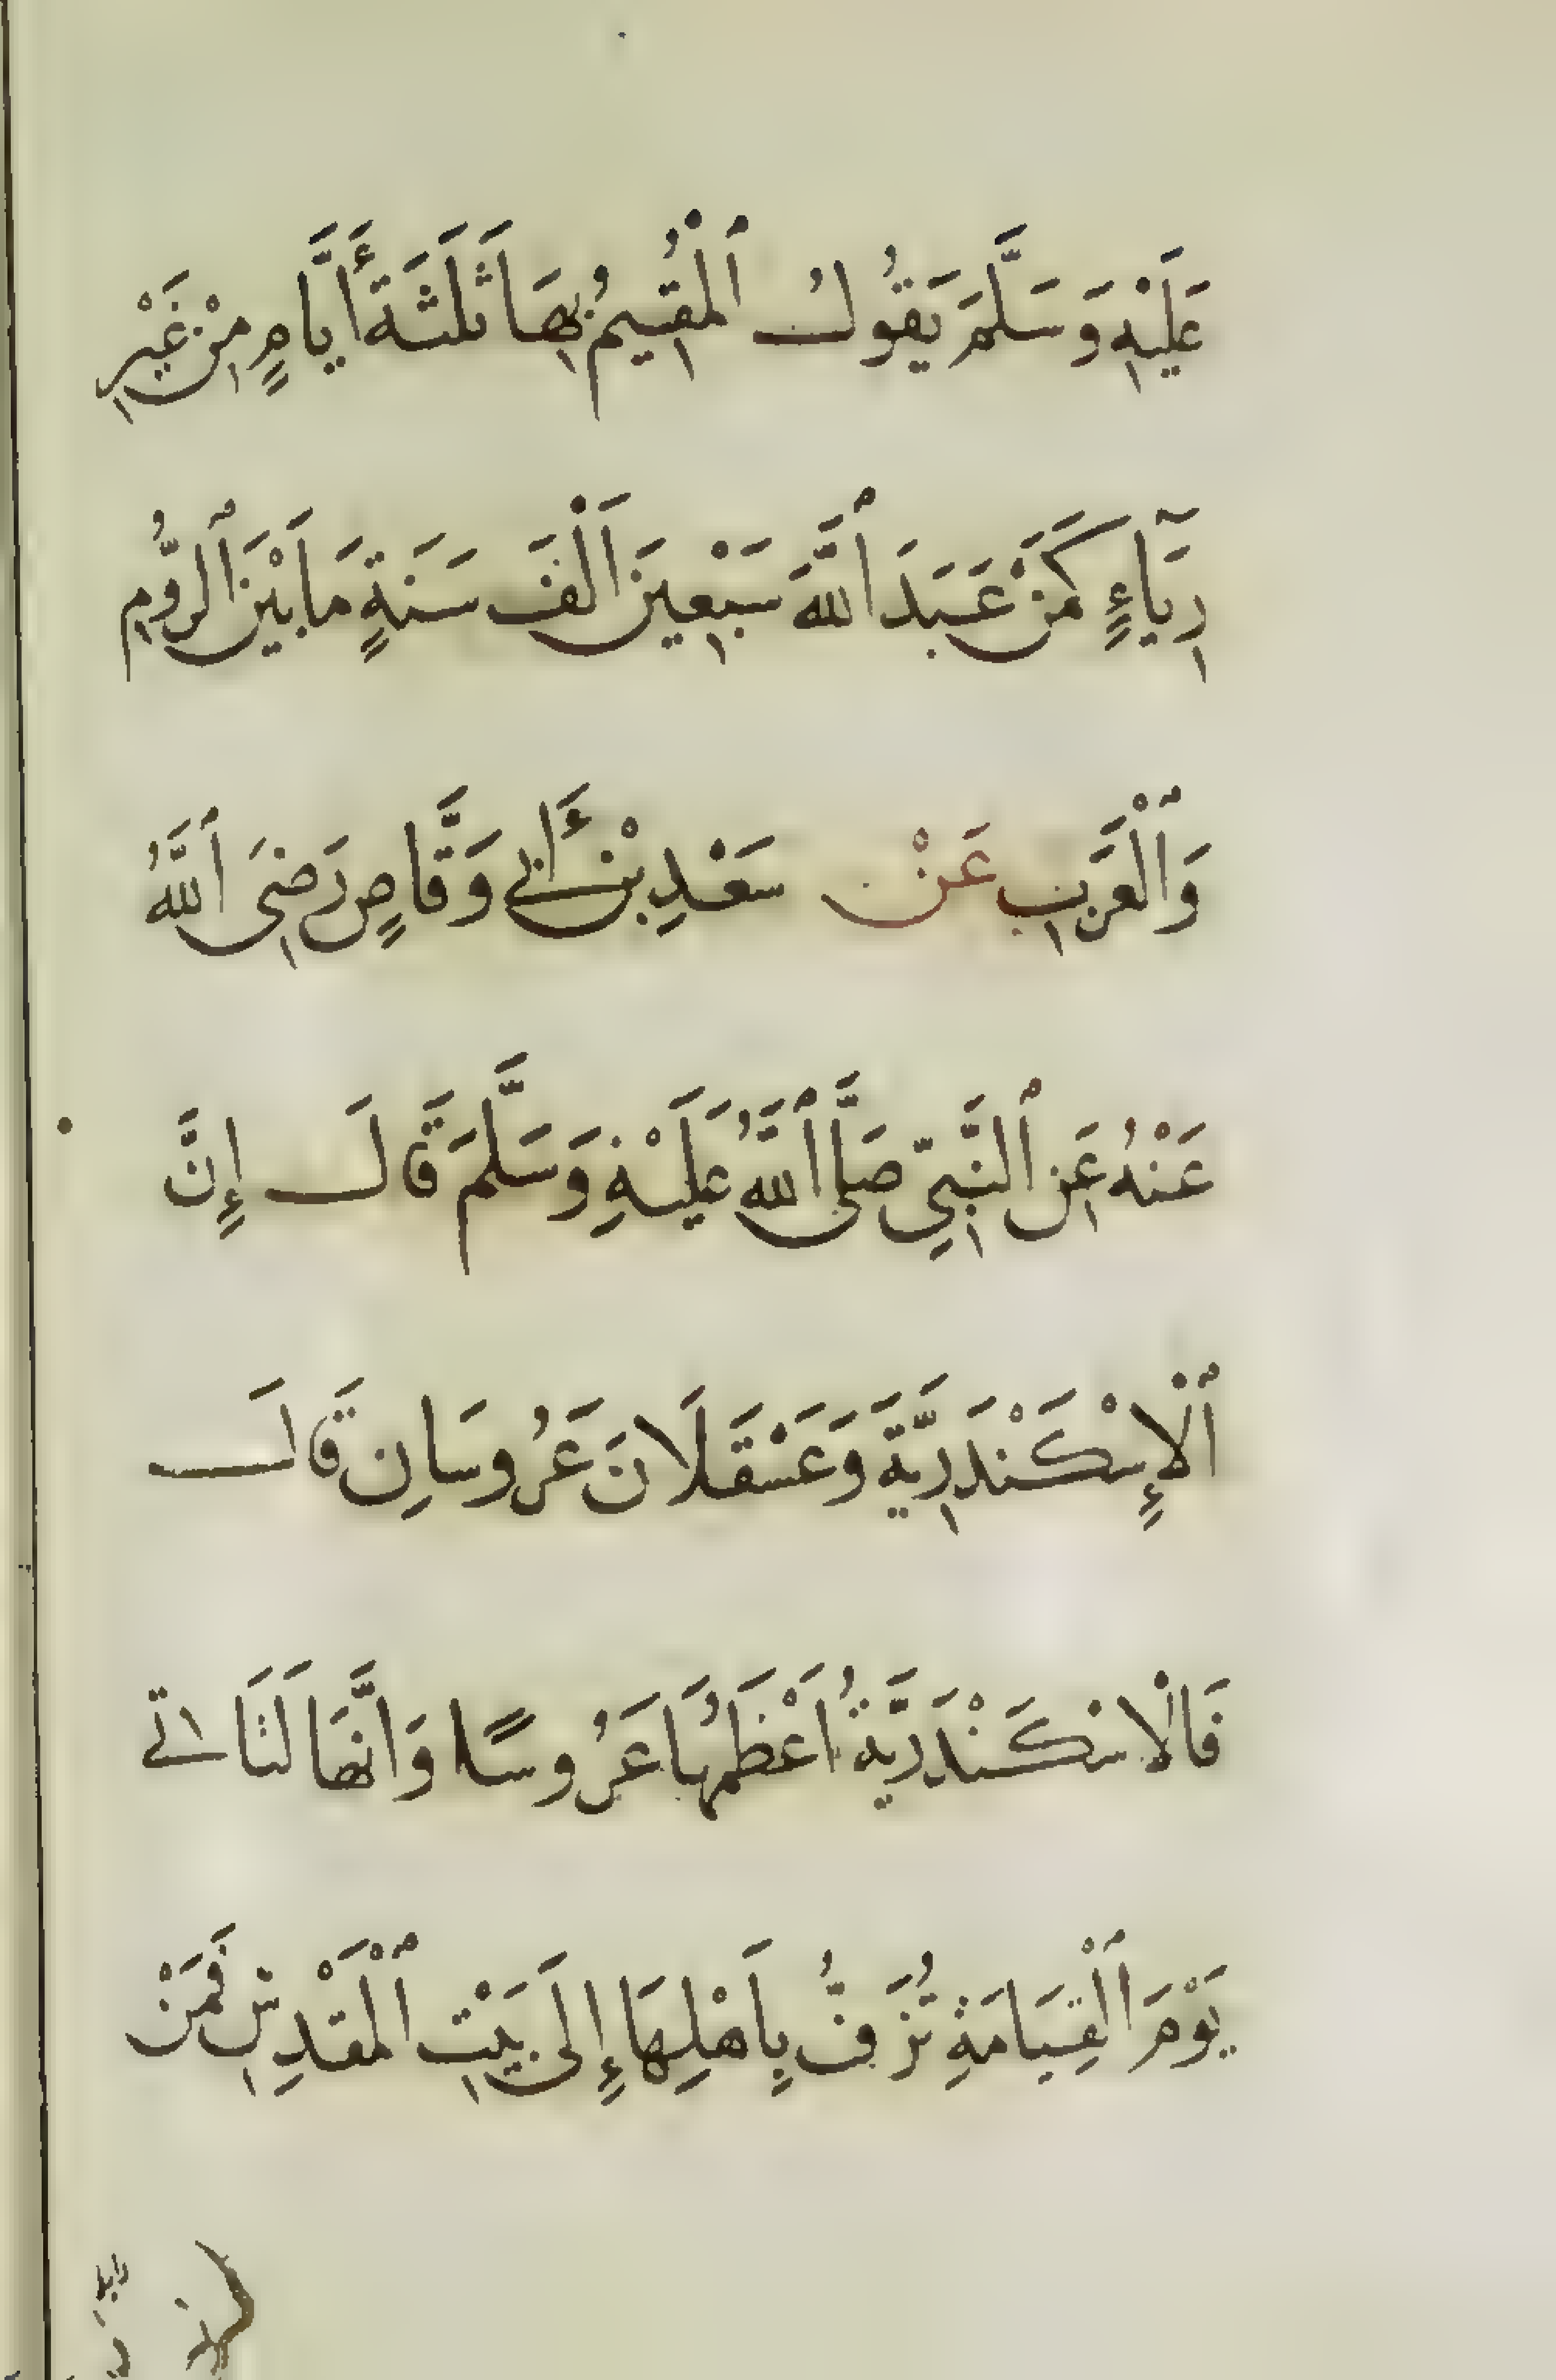 عَلَيْهِ وَسَلَّمَ يَقُولُ ٱلْمُقِيمُ بِهَا ثَلَثَةَ أَيَّامٍ مِنْ غَيْرِ
رِيَآءٍ كَمَنْ عَبَدَ ٱللَّهَ سَبْعِينَ اَلْفَ سَنَةٍ مَا بَيْنَ ٱلرُّومِ
وَٱلْعَرَبِ عَنْ سَعْدِ بْنِ أَبِي وَقَّاصٍ رَضِىَ ٱللَّهُ
عَنْهُ عَنِ ٱلنَّبِيِّ صَلَّى ٱللَّهُ عَلَيْهِ وَسَلَّمَ قَالَ إِنَّ
ٱلْإِسْكَنْدَرِيَّةَ وَعَسْقَلَانَ عَرُوسَانِ قَالَ
فَالْاسْكَنْدَرِيَّةُ اَعْظَمُهَا عَرُوسًا وَاَنَّهَا لَتَاتي
يَوْمَ ٱلْقِيَامَةِ تُزَفُّ بِاَهْلِهَا إِلَى بَيْتِ ٱلْمَقْدِسِ فَمَنْ